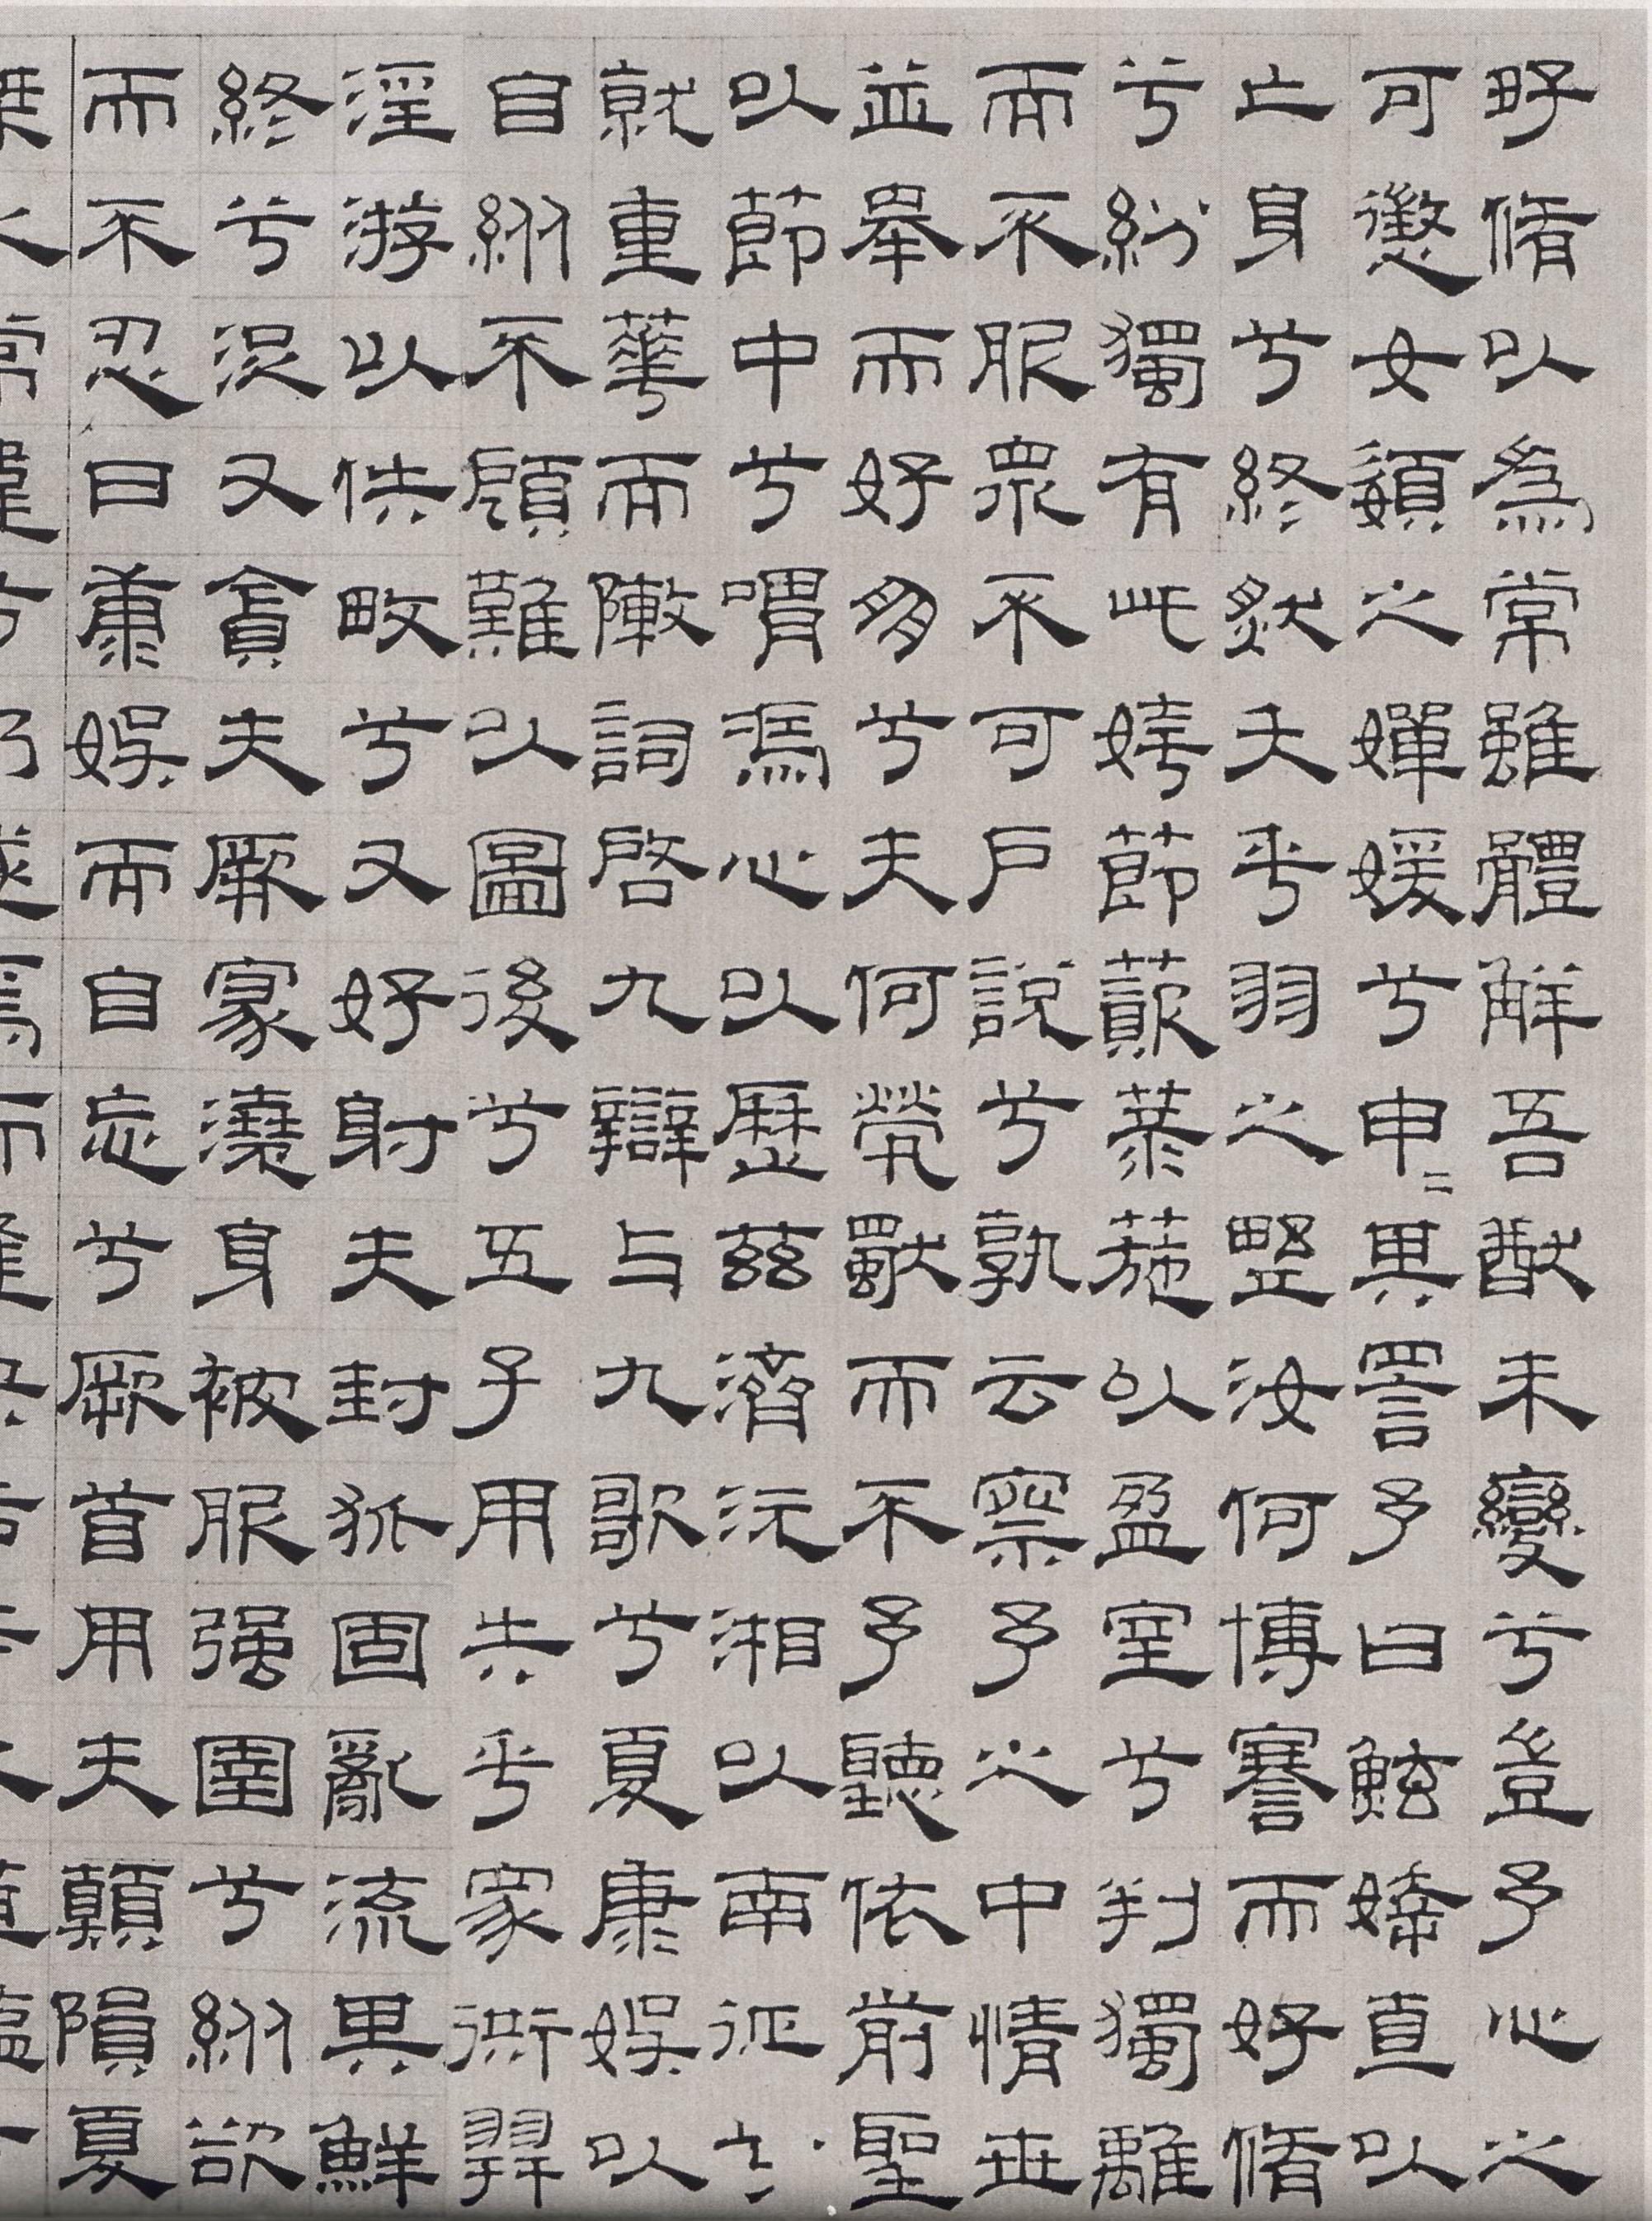 好脩以為常雖體解吾猶未變兮豈予心之
可懲女嬃之嬋媛兮申〻其詈予曰鮌婞直以
亡身兮終然夭乎羽之野汝何博謇而好脩
兮紛獨有此姱節薋菉葹以盈室兮判獨離
而不服眾不可戶說兮孰云察予之中情世
並舉而好朋兮夫何煢獨而不予聽依前聖
以節中兮喟馮心以歷茲濟沅湘以南征
就重華而陳詞啓九辯与九歌兮夏康娛以
自縱不顧難以圖後兮五子用失乎家衖羿
淫游以佚畋兮又好射夫封狐固亂流其鮮
終兮浞又貪夫厥家澆身被服强圉兮縱欲
而不忍日康娛而自忘兮厥首用夫顛隕夏